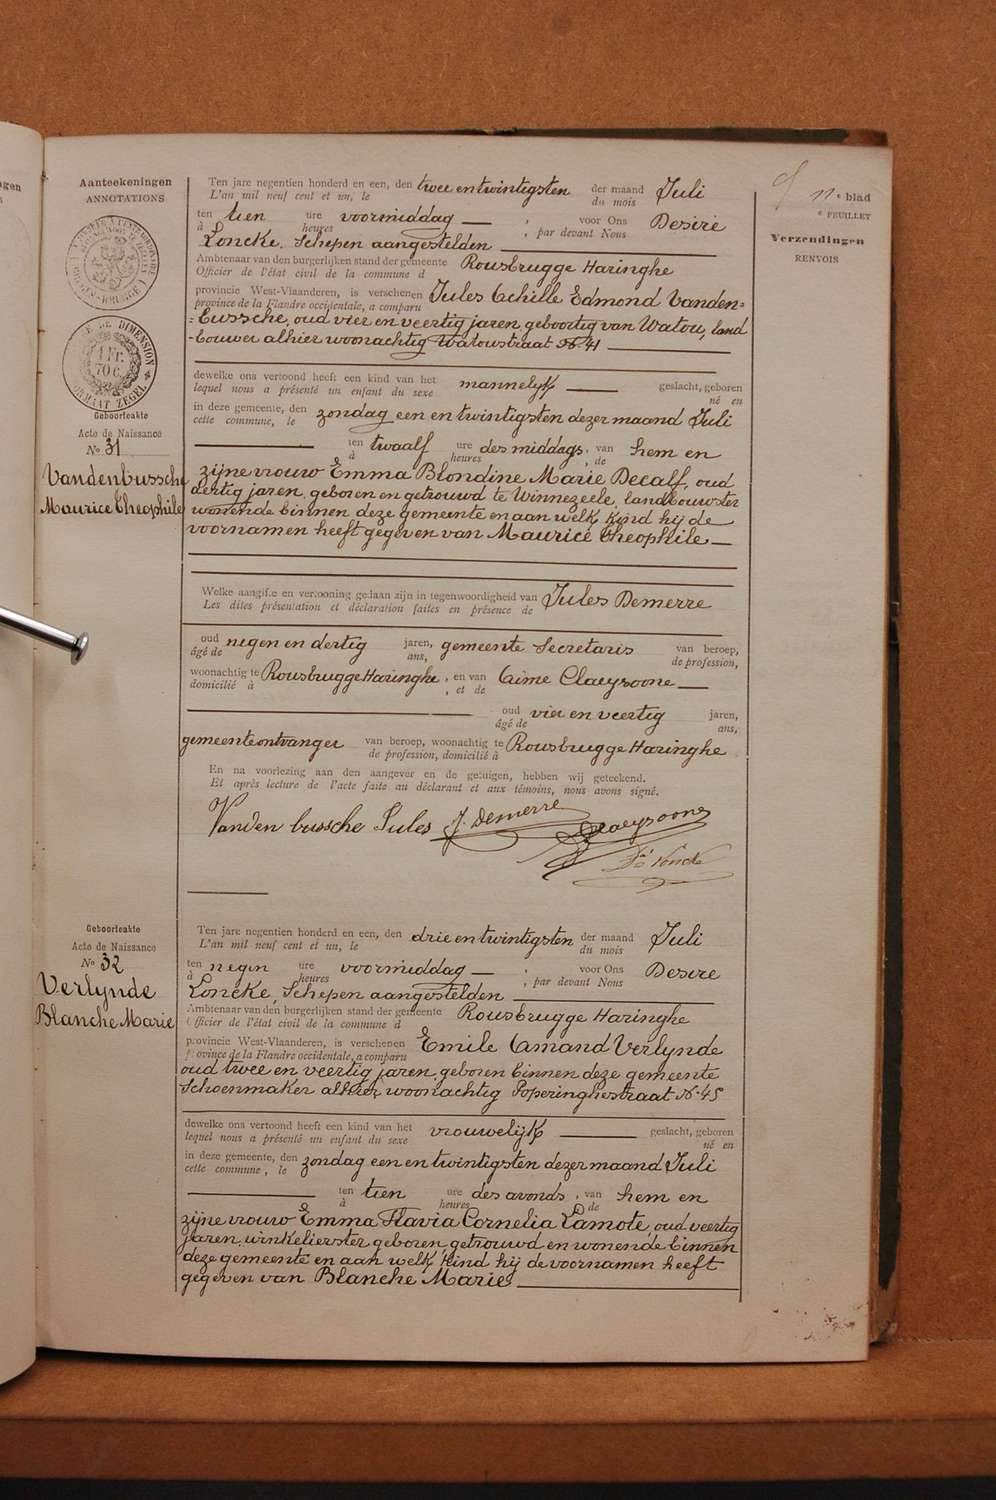 Aanteekeningen
ANNOTATIONS
DE DIMENSION
1 Fr.
70 c.
FORMAAT ZEGEL
Geboorteakte
Acte de Naissance
No 31
Vandenbussche
Maurice Theophile
11e blad
e FEUILLET
Verzendingen
RENVOIS
Ten jare negentien honderd en een, den twee en twintigsten der maand Juli
L'an mil neuf cent et un, le du mois
ten tien ure voormiddag — , voor Ons Desiré
à heures , par devant Nous
Loncke, Schepen aangestelden
Ambtenaar van den burgerlijken stand der gemeente Rousbrugge Haringhe
Officier de l'état civil de la commune d
provincie West-Vlaanderen, is verschenen Jules Achille Edmond Vanden=
province de la Flandre occidentale, a comparu
=bussche, oud vier en veertig jaren geboortig van Watou, land
-bouwer alhier woonachtig Watoustraat No 41
dewelke ons vertoond heeft een kind van het mannelijk — geslacht, geboren
lequel nous a présenté un enfant du sexe né en
in deze gemeente, den zondag een en twintigsten dezer maand Juli
cette commune, le
ten twaalf ure des middags, van hem en
à heures , de
zijne vrouw Emma Blondine Marie Decalf, oud
dertig jaren, geboren en getrouwd te Winnezeele, landbouwster
wonende binnen deze gemeente en aan welk kind hij de
voornamen heeft gegeven van Maurice Theophile —
Welke aangifte en vertooning gedaan zijn in tegenwoordigheid van Jules Demerre
Les dites présentation et déclaration faites en présence de
oud negen en dertig jaren, gemeente Secretaris van beroep,
âgé de ans, de profession,
woonachtig te Rousbrugge Haringhe, en van Aimé Claeysoone —
domicilié à , et de
oud vier en veertig jaren,
âgé de ans,
gemeenteontvanger van beroep, woonachtig te Rousbrugge Haringhe
de profession, domicilié à
En na voorlezing aan den aangever en de getuigen, hebben wij geteekend.
Et après lecture de l'acte faite au déclarant et aux témoins, nous avons signé.
Vanden bussche Jules J. Demerre
Claeysoone
Dé Loncke
Geboorteakte
Acte de Naissance
No 32
Verlynde
Blanche Marie
Ten jare negentien honderd en een, den drie en twintigsten der maand Juli
L'an mil neuf cent et un, le du mois
ten negen ure voormiddag — , voor Ons Desiré
à heures , par devant Nous
Loncke, Schepen aangestelden
Ambtenaar van den burgerlijken stand der gemeente Rousbrugge Haringhe
Officier de l'état civil de la commune d
provincie West-Vlaanderen, is verschenen Emile Amand Verlynde
province de la Flandre occidentale, a comparu
oud twee en veertig jaren geboren binnen deze gemeente
Schoenmaker alhier woonachtig Poperinghestraat No 45
dewelke ons vertoond heeft een kind van het vrouwelijk — geslacht, geboren
lequel nous a présenté un enfant du sexe né en
in deze gemeente, den zondag een en twintigsten dezer maand Juli
cette commune, le
ten tien ure des avonds, van hem en
à heures de
zijne vrouw Emma Flavia Cornelia Lamote, oud veertig
jaren, winkelierster geboren, getrouwd en wonende binnen
deze gemeente en aan welk kind hij de voornamen heeft
gegeven van Blanche Marie